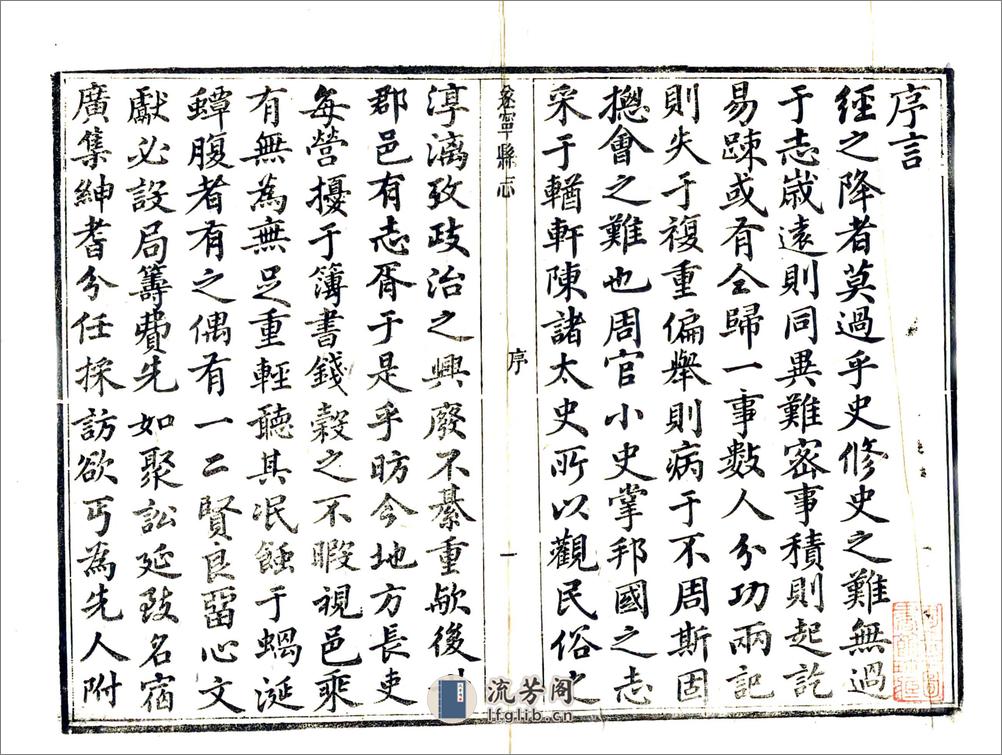 序言
經之降者莫過乎史修史之難無過
于志歲遠則同異難密事積則起訖
易踈或有全歸一事數人分功兩記
則失于複重偏舉則病于不周斯固
摠會之難也周官小史掌邦國之志
采于輶軒陳諸太史所以觀民俗之
縣志
序
一
淳漓攷政治之興廢不綦重歟後
郡邑有志胥于是乎昉今地方長吏
每營擾于簿書錢穀之不暇視邑乘
有無為無足重輕聽其泯蝕于蝸涎
蟫腹者有之偶有一二賢良畱心文
獻必設局籌費先如聚訟延致名宿
廣集紳耆分任採訪欲丐為先人附
流芳阁
lfglib.cn